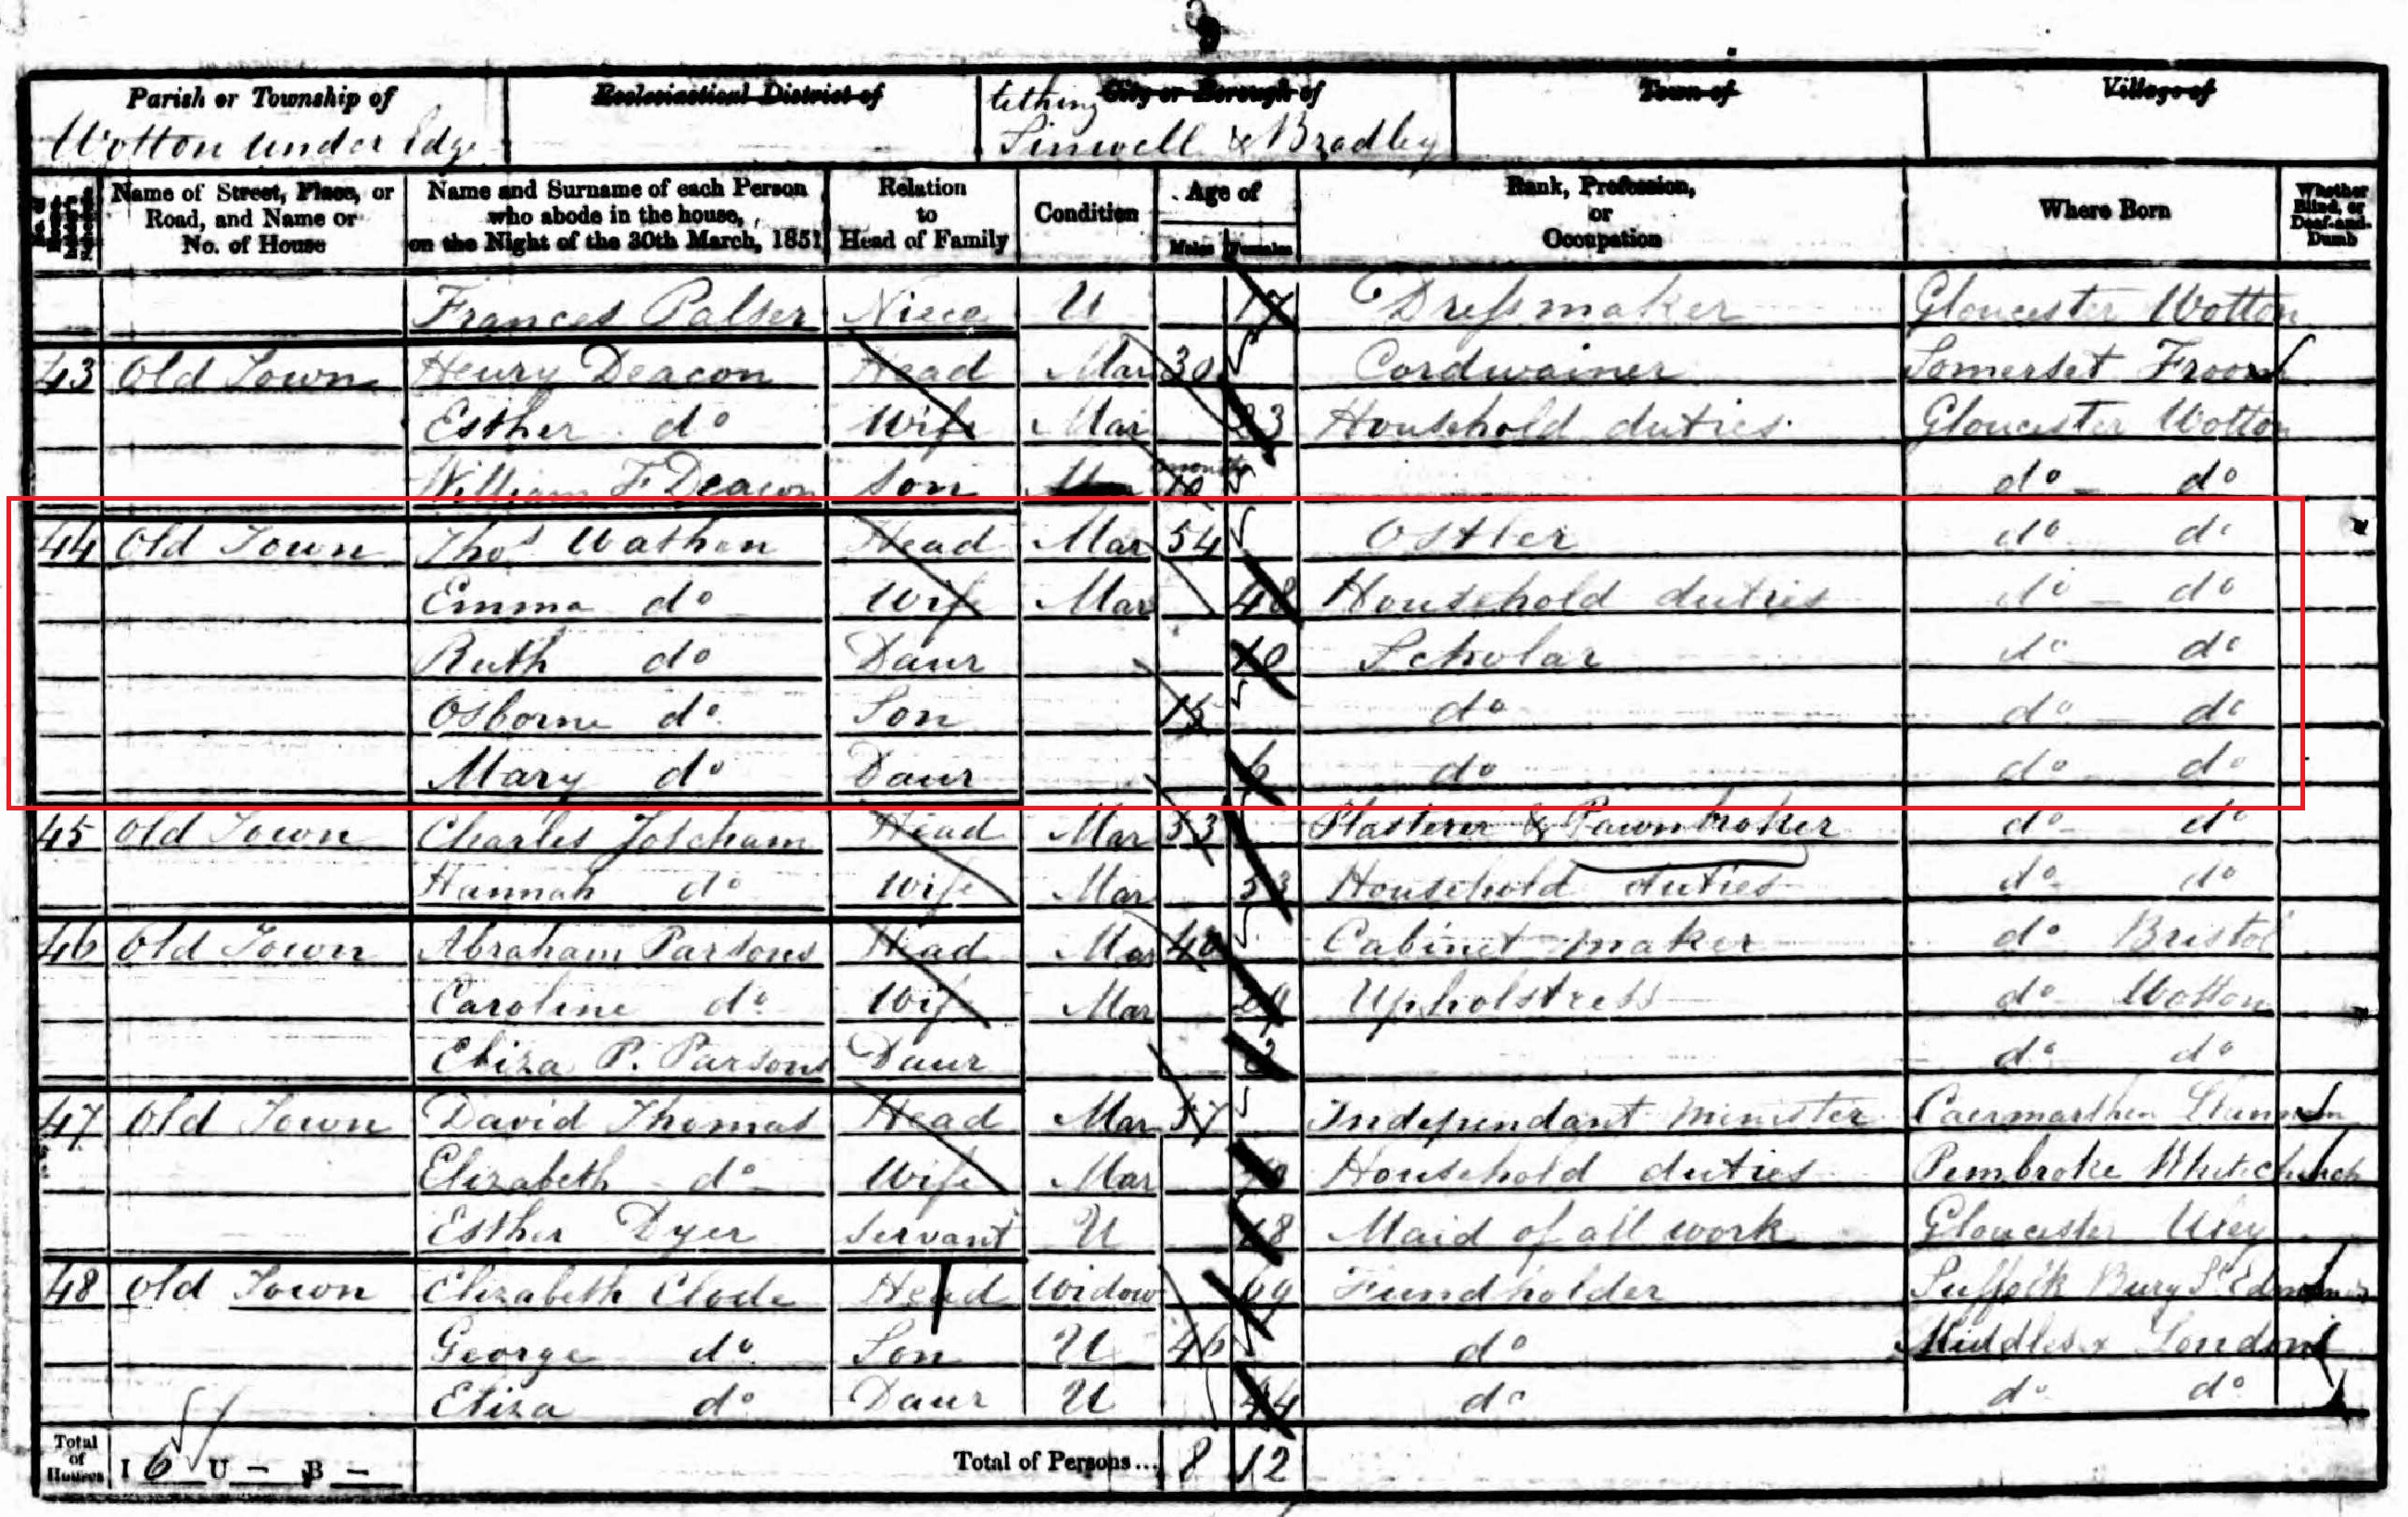 9
Parish or Township of Ecclesiastical District of City or Borough of Town of Village of
Wotton under Edge tithing Sinwell & Bradley
Name of Street, Place, or Road, and Name or No. of House Name and Surname of each Person who abode in the house, on the Night of the 30th March, 1851 Relation to Head of Family Condition Age of Males Females Rank, Profession, or Occupation Where Born Whether Blind, or Deaf-and-Dumb
Frances Palser Niece U 17 Dressmaker Gloucester Wotton
43 Old Town Henry Deacon Head Mar 30 Cordwainer Somerset Froome
Esther do Wife Mar 23 Household duties Gloucester Wotton
William F Deacon Son months 10 do do
44 Old Town Thos Wathen Head Mar 54 Ostler do do
Emma do Wife Mar 48 Household duties do do
Ruth do Daur 10 Scholar do do
Osborne do Son 15 do do do
Mary do Daur 6 do do do
45 Old Town Charles Jotcham Head Mar 53 Plasterer & Pawnbroker do do
Hannah do Wife Mar 53 Household duties do do
46 Old Town Abraham Parsons Head Mar 40 Cabinet maker do Bristol
Caroline do Wife Mar Upholstress do Wotton
Eliza P. Parsons Daur do do
47 Old Town David Thomas Head Mar 37 Independant Minister Caermarthen
Elizabeth do Wife Mar Household duties Pembroke Whitechurch
Esther Dyer Servant U 18 Maid of all work Gloucester Uley
48 Old Town Elizabeth Clode Head Widow 69 Fundholder Suffolk Bury St Edmunds
George do Son U 46 do Middlesex London
Eliza do Daur U 44 do do do
Total of Houses I 6 U – B – Total of Persons... 8 12